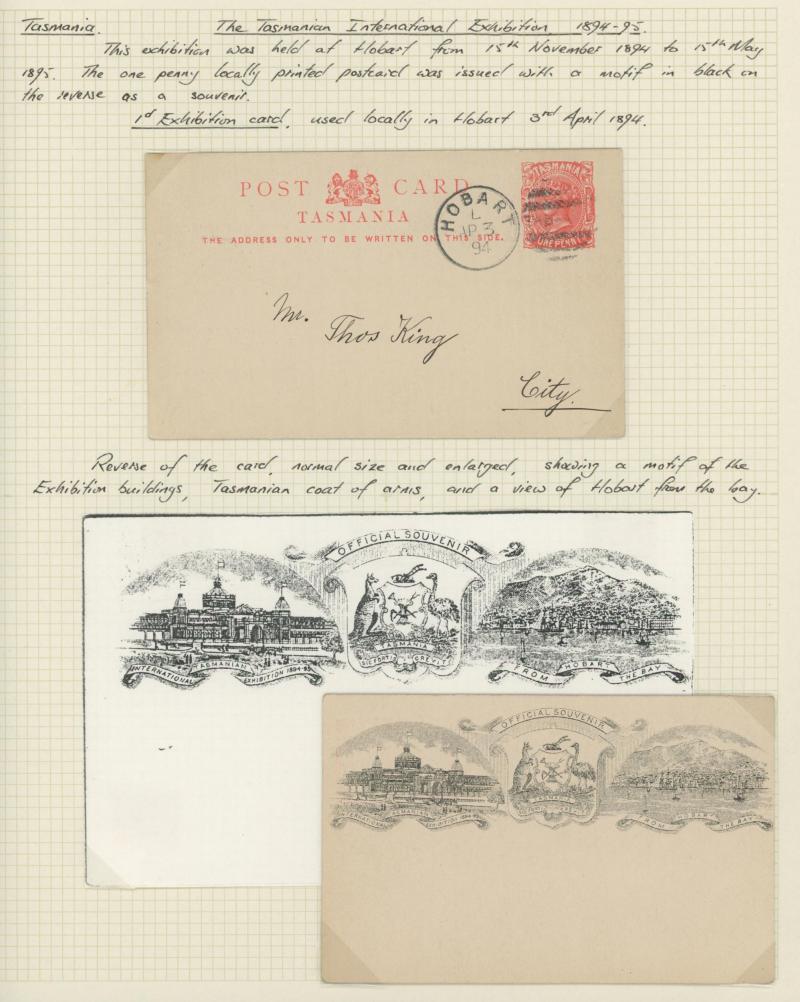 Tasmania. The Tasmanian International Exhibition 1894-95.
This exhibition was held at Hobart from 15th November 1894 to 15th May
1895. The one penny locally printed postcard was issued with a motif in black on
the reverse as a souvenir.
1d Exhibition card, used locally in Hobart 3rd April 1894.
POST CARD
TASMANIA
THE ADDRESS ONLY TO BE WRITTEN ON THIS SIDE.
TASMANIA
ONE PENNY
HOBART
L
AP 3
94
Mr.
Thos King
City.
Reverse of the card, normal size and enlarged, showing a motif of the
Exhibition buildings, Tasmanian coat of arms, and a view of Hobart from the bay.
OFFICIAL SOUVENIR
TASMANIA
SIC FORTIS CREVIT
INTERNATIONAL TASMANIAN EXHIBITION 1894-95
FROM HOBART THE BAY
OFFICIAL SOUVENIR
TASMANIA
INTERNATIONAL TASMANIAN EXHIBITION 1894-95
FROM HOBART THE BAY